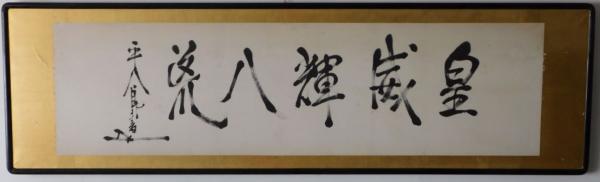 皇威輝八荒
平八郎書